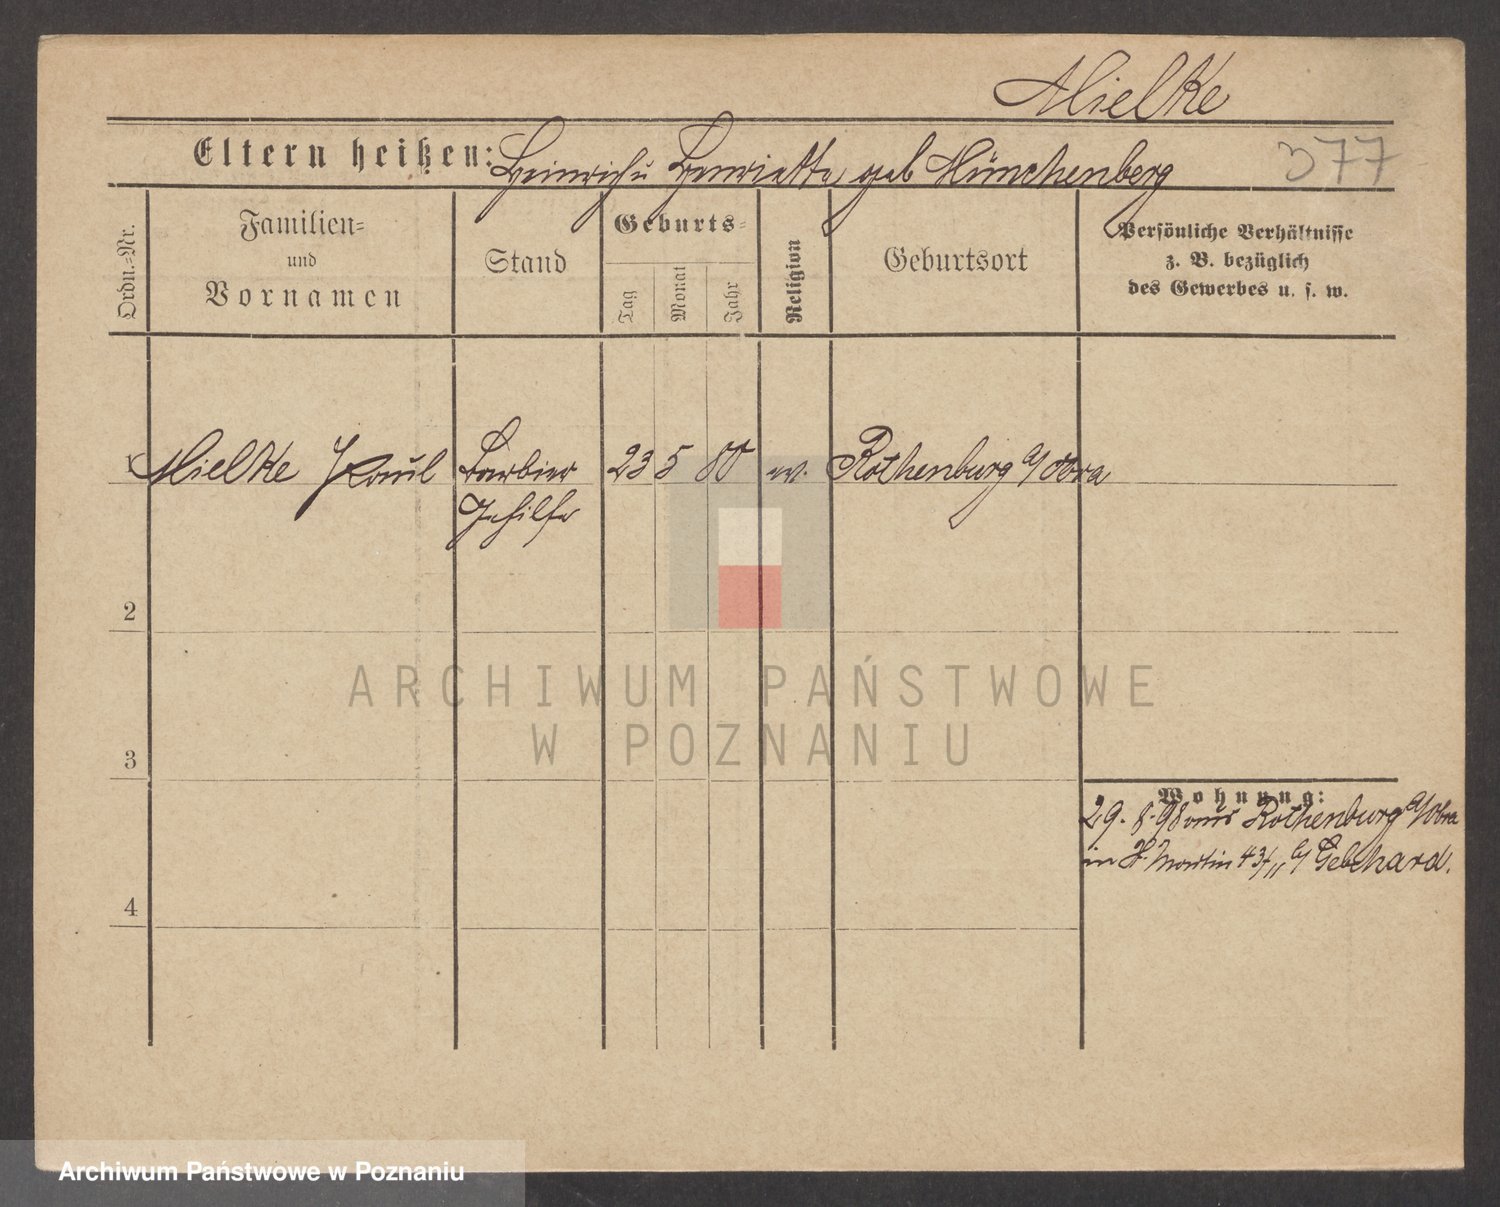 Mielke
Eltern heißen: Heinrich u Henriette geb Münchenberg 377
Ordn.=Nr.
Familien=
und
Vornamen
Stand
Geburts=
Tag
Monat
Jahr
Religion
Geburtsort
Persönliche Verhältnisse
z. B. bezüglich
des Gewerbes u. s. w.
1 Mielke Paul Barbier 23 5 80 ev. Rothenburg a/Obra
Gehilfe
2
3
4
Wohnung:
29. 8. 98 aus Rothenburg a/Obra
in St. Martin 43/II b/ Gebhard.
ARCHIWUM PAŃSTWOWE
W POZNANIU
Archiwum Państwowe w Poznaniu